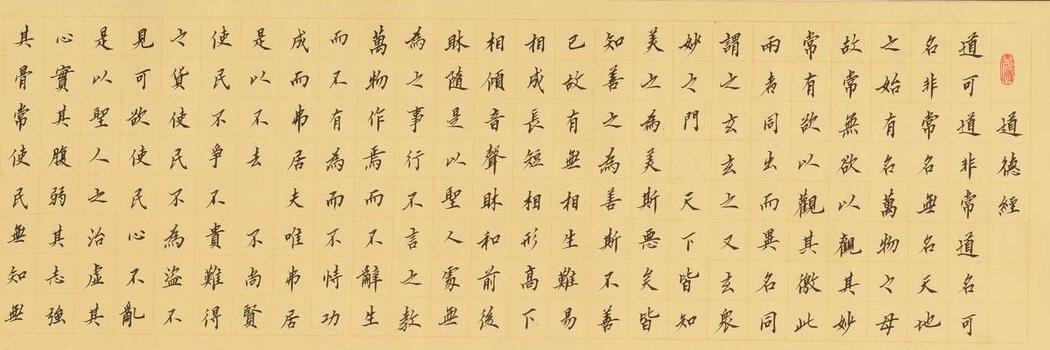 道德經
道可道非常道名可
名非常名無名天地
之始有名萬物之母
故常無欲以觀其妙
常有欲以觀其徼此
兩者同出而異名同
謂之玄玄之又玄衆
妙之門 天下皆知
美之為美斯惡矣皆
知善之為善斯不善
已故有無相生難易
相成長短相形高下
相傾音聲相和前後
相隨是以聖人處無
為之事行不言之教
萬物作焉而不辭生
而不有為而不恃功
成而弗居夫唯弗居
是以不去 不尚賢
使民不爭不貴難得
之貨使民不為盜不
見可欲使民心不亂
是以聖人之治虛其
心實其腹弱其志強
其骨常使民無知無